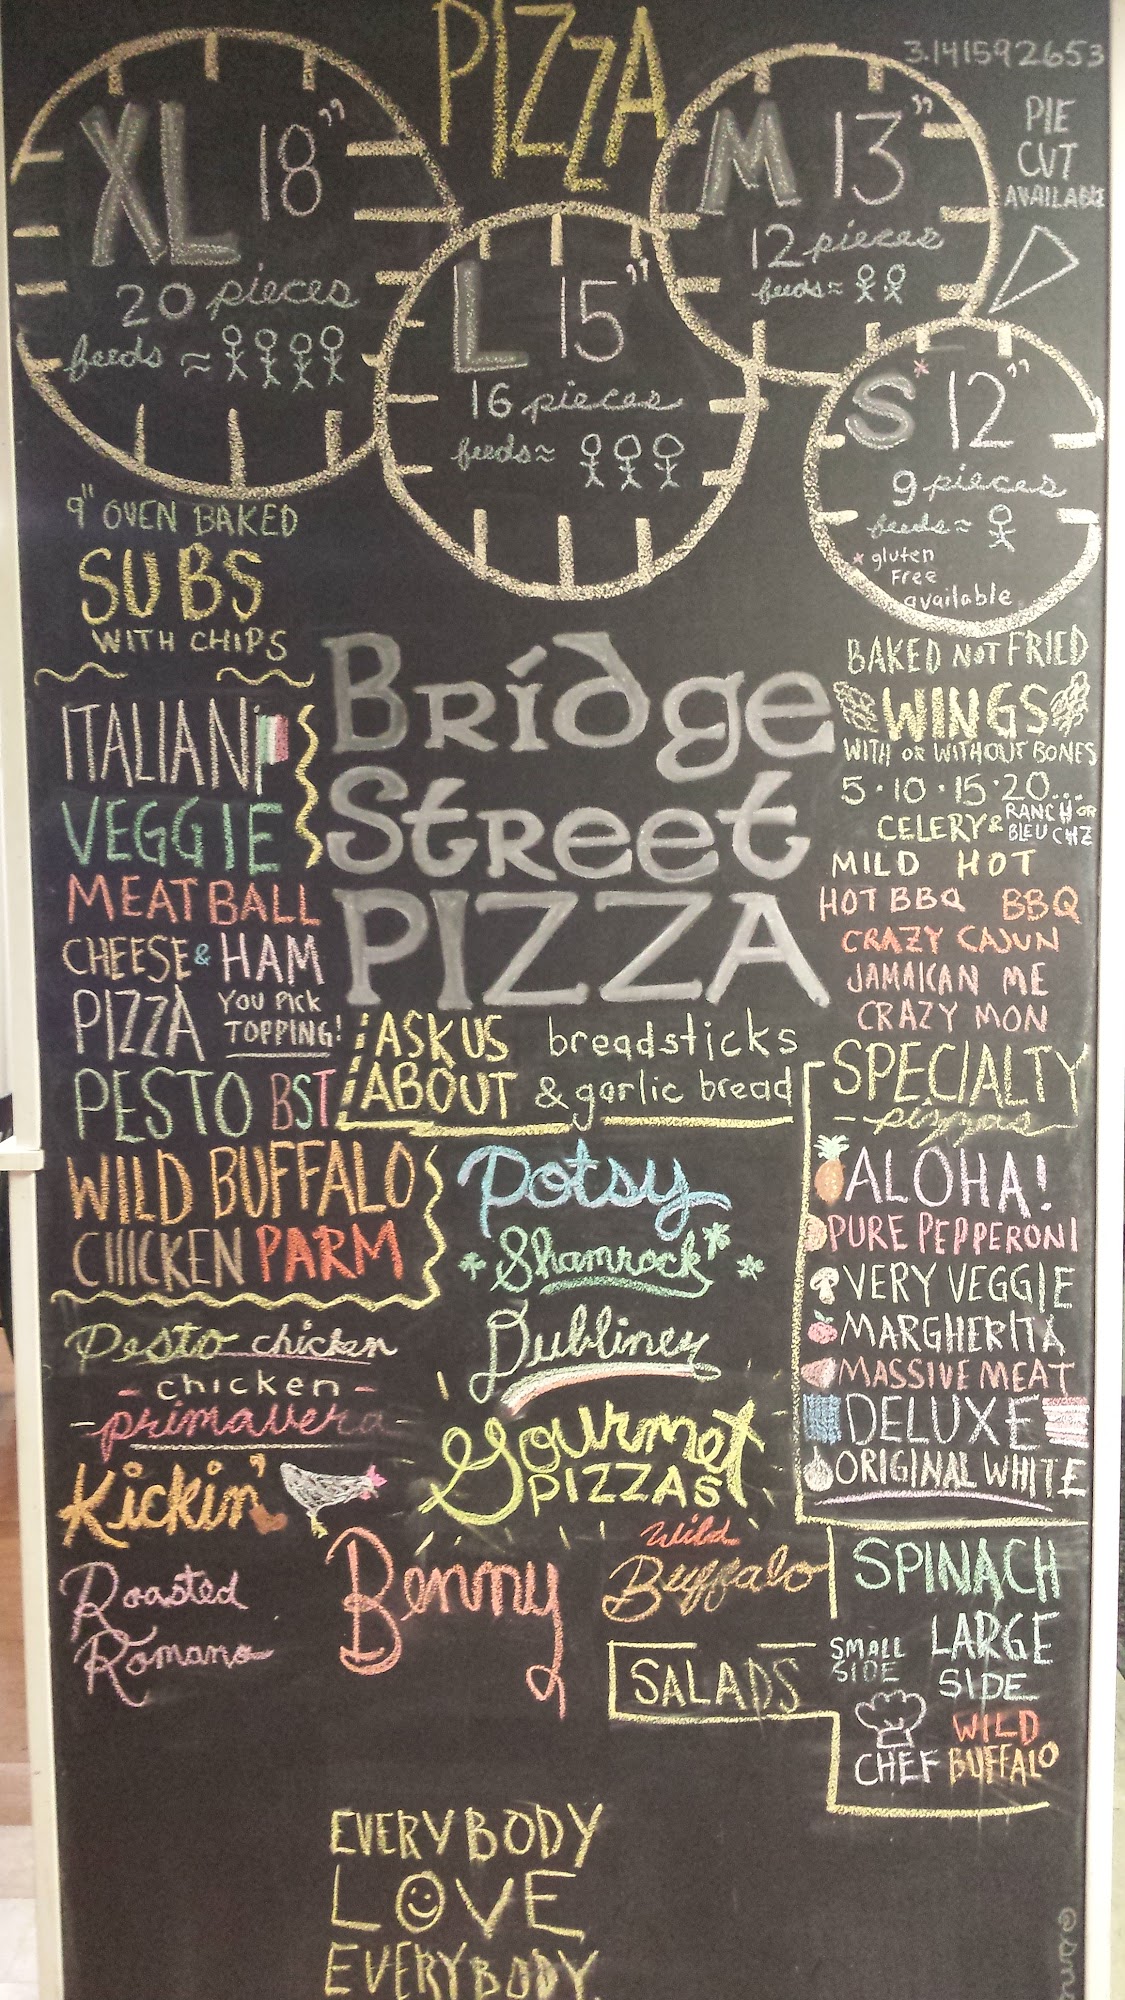 PIZZA
XL 18"
20 pieces
feeds ≈
L 15"
16 pieces
feeds ≈
M 13"
12 pieces
feeds ≈
3.141592653
PIE
CUT
AVAILABLE
S* 12"
9 pieces
feeds ≈
* gluten
Free
available
9" OVEN BAKED
SUBS
WITH CHIPS
ITALIAN
VEGGIE
MEATBALL
CHEESE & HAM
PIZZA YOU PICK
TOPPING!
PESTO BST
WILD BUFFALO
CHICKEN PARM
Bridge
Street
PIZZA
ASK US
ABOUT
breadsticks
& garlic bread
BAKED NOT FRIED
WINGS
WITH OR WITHOUT BONES
5·10·15·20...
CELERY & RANCH OR
BLEU CHZ
MILD HOT
HOT BBQ BBQ
CRAZY CAJUN
JAMAICAN ME
CRAZY MON
SPECIALTY
pizzas
ALOHA!
PURE PEPPERONI
VERY VEGGIE
MARGHERITA
MASSIVE MEAT
DELUXE
ORIGINAL WHITE
Potsy
Shamrock
Dubliner
Gourmet
PIZZAS
Pesto chicken
chicken
primavera
Kickin'
Roasted
Romano
Benny
Wild
Buffalo
SALADS
SPINACH
SMALL
SIDE
LARGE
SIDE
CHEF
WILD
BUFFALO
EVERYBODY
LOVE
EVERYBODY.